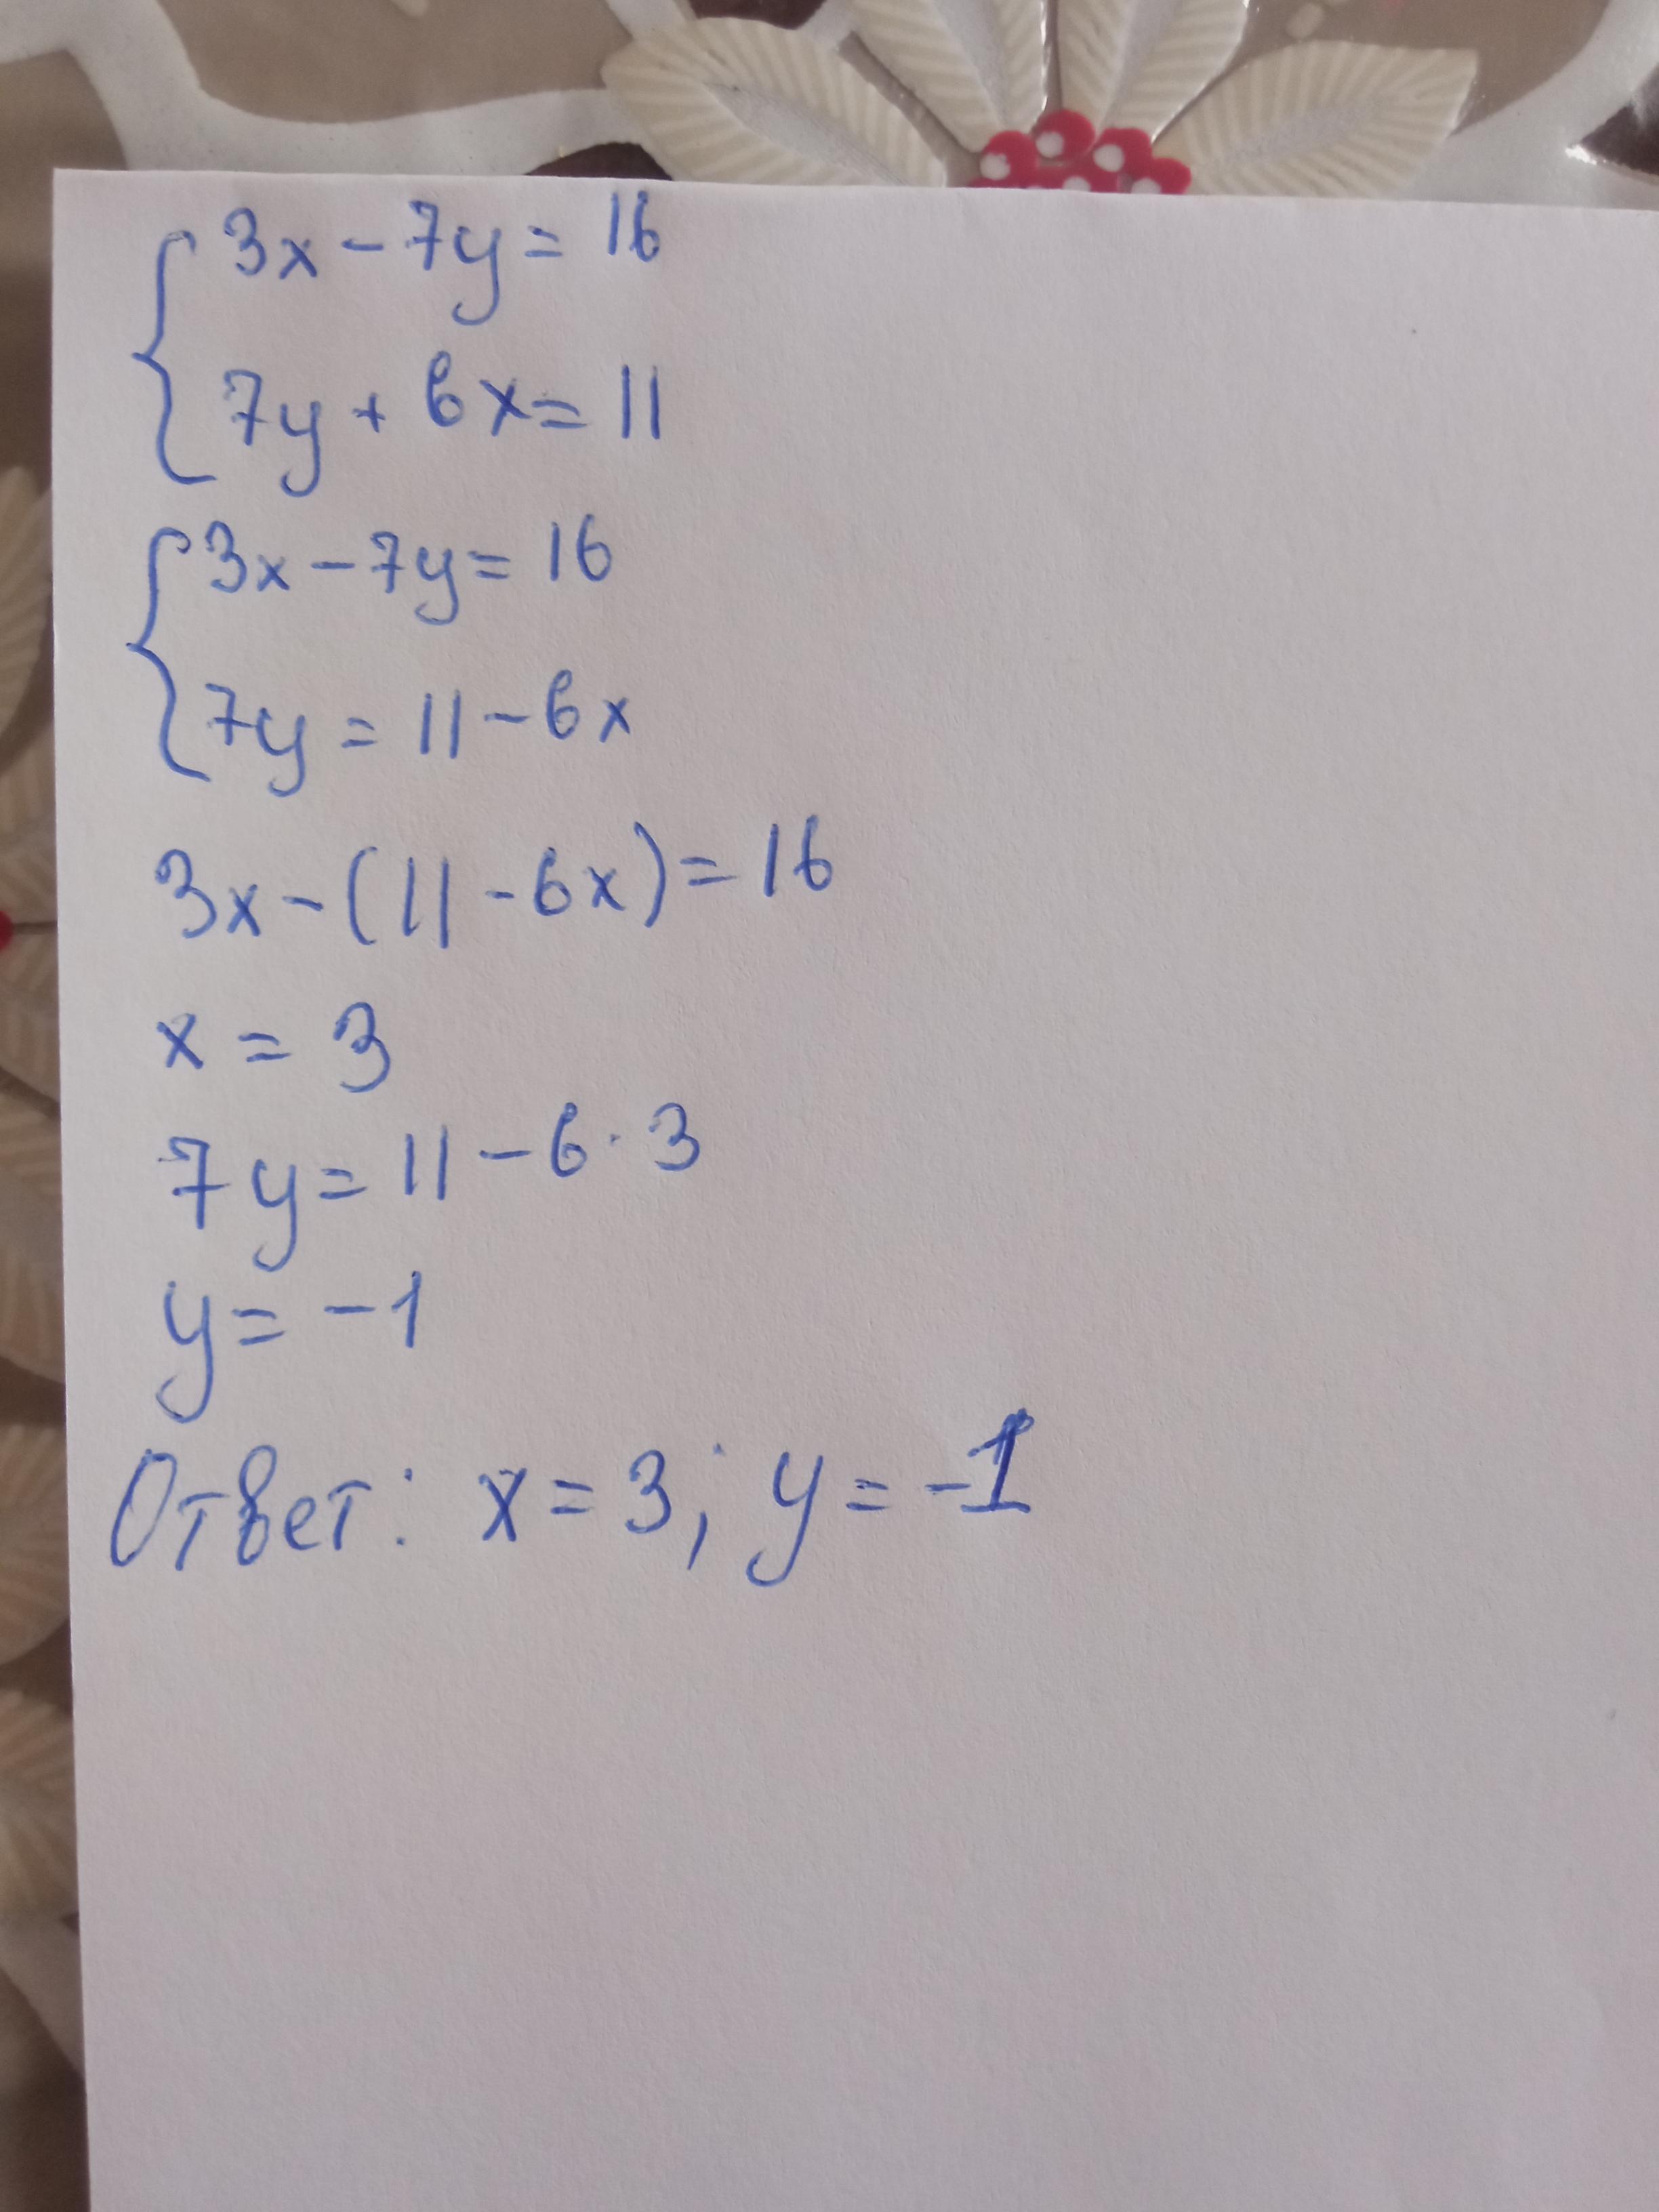 {3x - 7y = 16
7y + 6x = 11
{3x - 7y = 16
7y = 11 - 6x
3x - (11 - 6x) = 16
x = 3
7y = 11 - 6 · 3
y = -1
Ответ: x = 3; y = -1